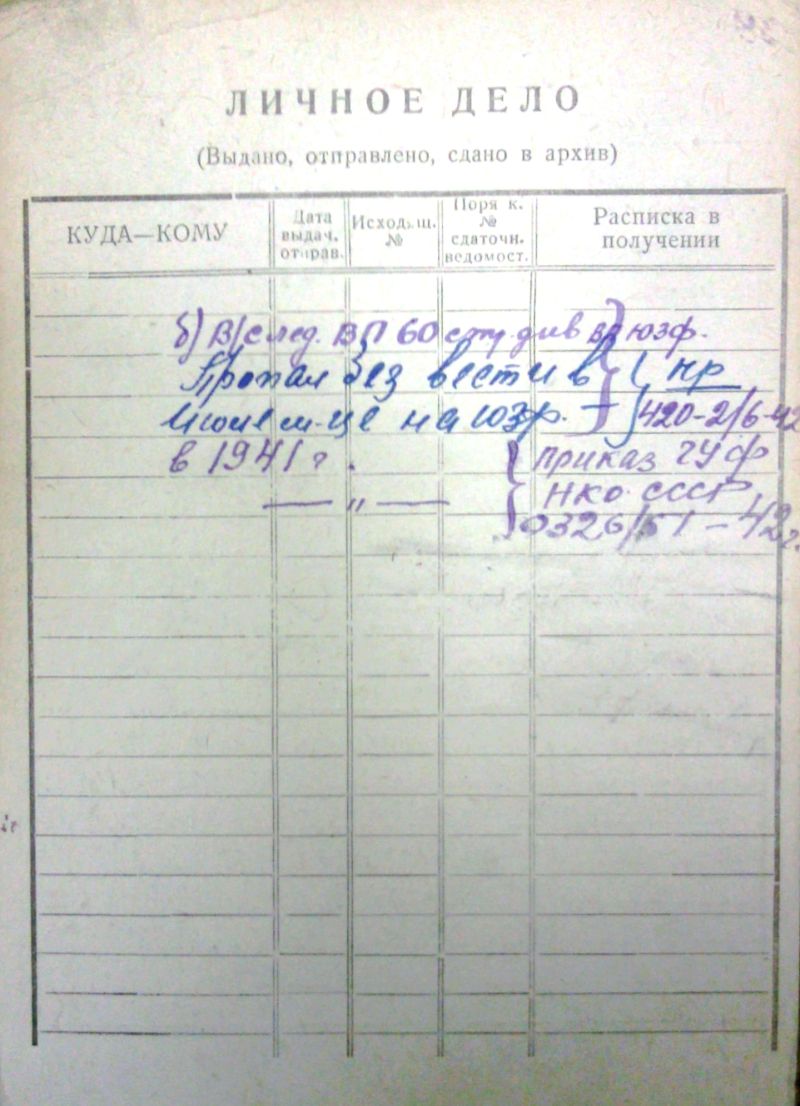 ЛИЧНОЕ ДЕЛО
(Выдано, отправлено, сдано в архив)
КУДА—КОМУ
Дата выдач. отправ.
Исходящ. №
Поря к. № сдаточн. ведомост.
Расписка в получении
б) В/след. ВП 60 стр. див ЮЗФ.
Пропал без вести в } { пр
июле м-це на ЮЗФ. — 420-2/6-42
в 1941 г. { приказ ГУФ
— „ — НКО СССР
0326/ – 42 г.